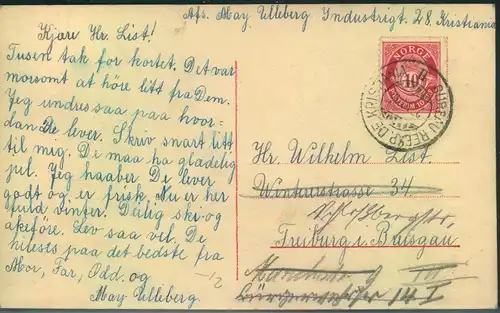 Afs. May Ulleberg Industrigt. 28. Kristiania
Kjære Hr. List!
Tusen tak for kortet. Det var
morsomt at höre litt fra Dem.
Jeg undres saa paa hvor-
dan De lever. Skriv snart litt
til mig. De maa ha gladelig
jul. Jeg haaber De lever
godt og er frisk. Nu er her
fuld vinter. Deilig ski- og
akeföre. Lev saa vel. De
hilsets paa det bedste fra
Mor, Far, Odd. og
May Ulleberg.
NORGE
10
Hr. Wilhelm List
Winterstrasse 34
Freiburg i Baisgau
14 I